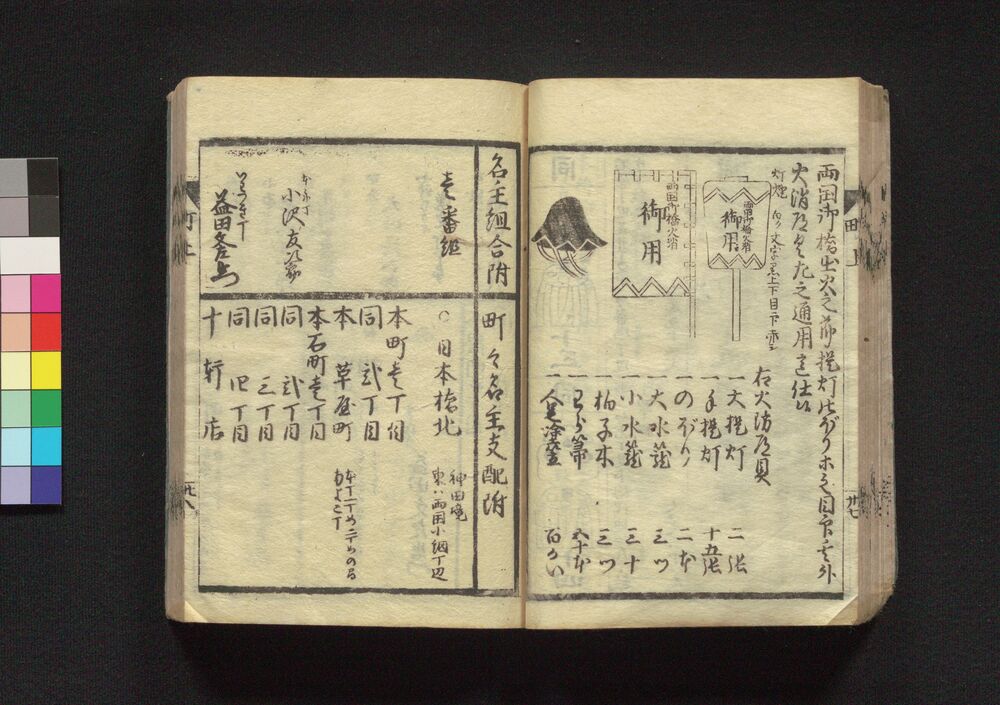 両国御橋出火之節提灯のぼり木之目印其外
火消道具左之通用意仕候
灯燈 白ク文字黒上下目印赤シ
両国御橋火消
御用
両国御橋火消
御用
右火消道具
一 大提灯 二張
一 手提灯 十五張
一 のぼり 二本
一 大水籠 三ツ
一 小水籠 三十
一 拍子木 三ツ
一 わら箒 五十本
一 人足塗笠 百かい
名主組合附
壱番組
小沢友次郎
益田
町々名主支配附
○日本橋北
神田境
東ハ両国小網丁辺
本町壱丁目
同 弐丁目
本 草屋町
本石町壱丁目
同 弐丁目
同 三丁目
同 四丁目
十軒店